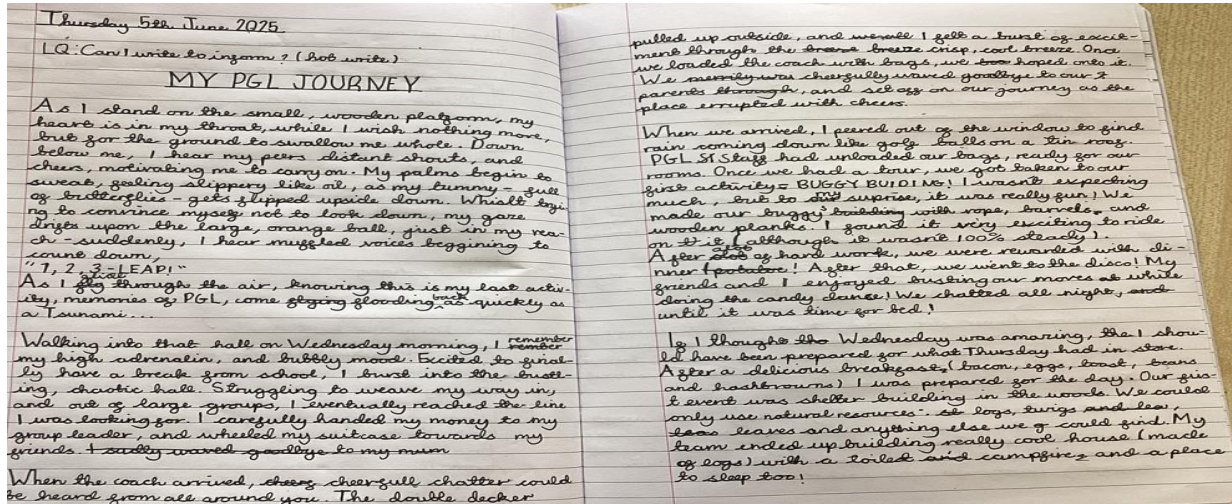 Thursday 5th June 2025
LQ: Can I write to inform? (hot write)
MY PGL JOURNEY
As I stand on the small, wooden platform, my
heart is in my throat, while I wish nothing more,
but for the ground to swallow me whole. Down
below me, I hear my peers distant shouts, and
cheers, motivating me to carry on. My palms begin to
sweat, feeling slippery like oil, as my tummy - full
of butterflies - gets flipped upside down. Whislt tryi-
ng to convince myself not to look down, my gaze
drifts upon the large, orange ball, just in my rea-
ch - suddenly, I hear muffled voices beggining to
count down,
"1, 2, 3 - LEAP!"
As I fly glide through the air, knowing this is my last activ-
ity, memories of PGL, come flying flooding back as quickly as
a Tsunami...
Walking into that hall on Wednesday morning, I remember
my high adrenalin, and bubbly mood. Excited to final-
ly have a break from school, I burst into the bustl-
ing, chaotic hall. Struggling to weave my way in,
and out of large groups, I eventually reached the line
I was looking for. I carefully handed my money to my
group leader, and wheeled my suitcase towards my
friends. I sadly waved goodbye to my mum
When the coach arrived, cheery cheerfull chatter could
be heard from all around you. The double decker
pulled up outside, and overall I felt a burst of excit-
ment through the breeze crisp, cool breeze. Once
we loaded the coach with bags, we hoped onto it.
We merrily was cheerfully waved goodbye to our
parents through, and set off on our journey as the
place errupted with cheers.
When we arrived, I peered out of the window to find
rain coming down like golf balls on a tin roof.
PGL Staff had unloaded our bags, ready for our
rooms. Once we had a tour, we got taken to our
first activity - BUGGY BUIDING! I wasn't expecting
much, but to suprise, it was really fun! We
made our buggy building with rope, barrels and
wooden planks. I found it very exciting to ride
on it (although it wasn't 100% steady).
After alot of hard work, we were rewarded with di-
nner (potatoe! After that, we went to the disco! My
friends and I enjoyed busting our moves at while
doing the candy dance! We chatted all night, and
until it was time for bed!
If I thought the Wednesday was amazing, the I shou-
ld have been prepared for what Thursday had in store.
After a delicious breakfast, (bacon, eggs, toast, beans
and hashbrowns) I was prepared for the day. Our firs-
t event was shelter building in the woods. We could
only use natural resources - logs, twigs and lea,
leaves and anything else we could find. My
team ended up building really cool house (made
of logs) with a toiled and campfire, and a place
to sleep too!